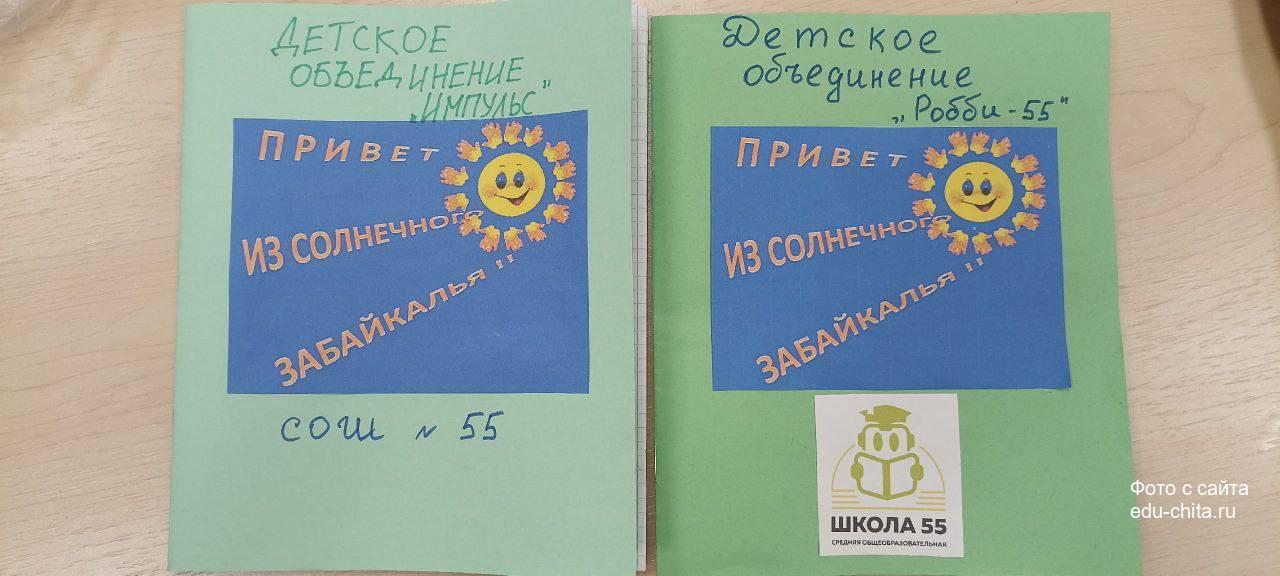 ДЕТСКОЕ
ОБЪЕДИНЕНИЕ
„ИМПУЛЬС"
ПРИВЕТ
ИЗ СОЛНЕЧНОГО
ЗАБАЙКАЛЬЯ !!
СОШ № 55
Детское
объединение
„Робби-55"
ПРИВЕТ
ИЗ СОЛНЕЧНОГО
ЗАБАЙКАЛЬЯ !!
ШКОЛА 55
СРЕДНЯЯ ОБЩЕОБРАЗОВАТЕЛЬНАЯ
Фото с сайта
edu-chita.ru